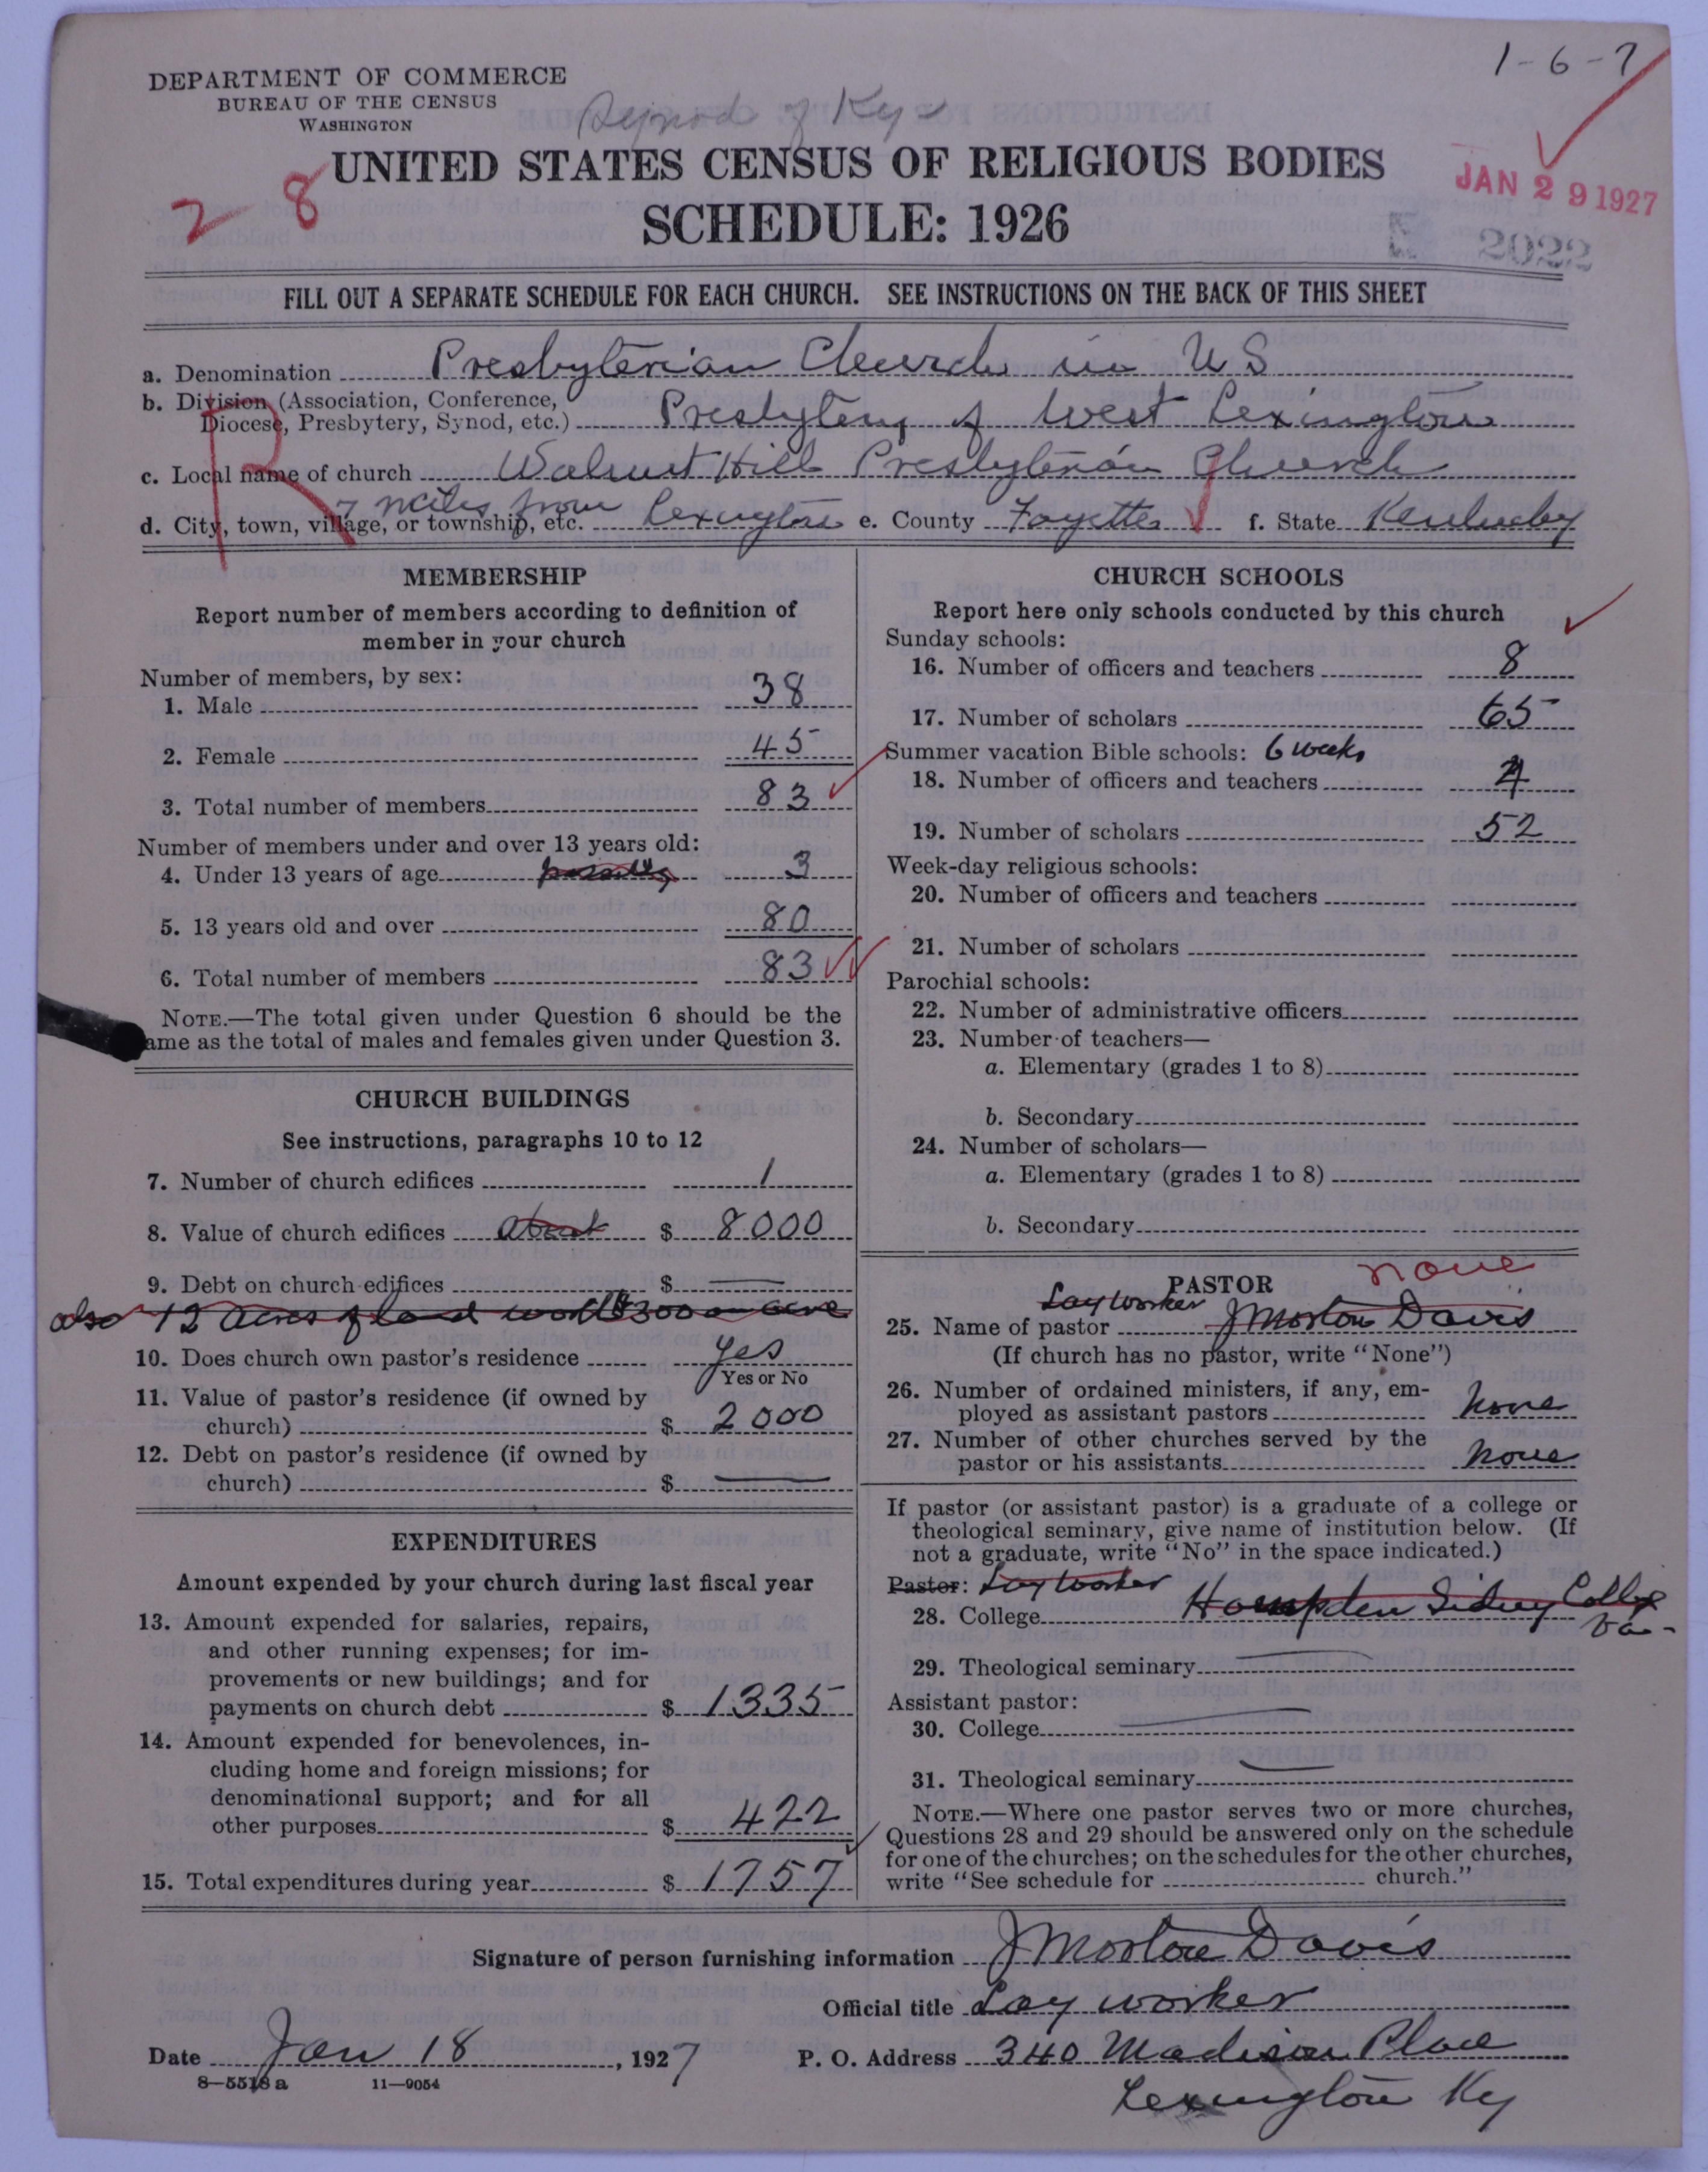 1-6-7
DEPARTMENT OF COMMERCE
BUREAU OF THE CENSUS
WASHINGTON
Synod of Ky
2 8
UNITED STATES CENSUS OF RELIGIOUS BODIES
SCHEDULE: 1926
JAN 29 1927
2022
FILL OUT A SEPARATE SCHEDULE FOR EACH CHURCH. SEE INSTRUCTIONS ON THE BACK OF THIS SHEET
a. Denomination Presbyterian Church in U S
b. Division (Association, Conference, Diocese, Presbytery, Synod, etc.) Presbytery of West Lexington
R
c. Local name of church Walnut Hill Presbyterian Church
d. City, town, village, or township, etc. 7 miles from Lexington e. County Fayette f. State Kentucky
MEMBERSHIP
Report number of members according to definition of
member in your church
Number of members, by sex:
1. Male 38
2. Female 45
3. Total number of members 83
Number of members under and over 13 years old:
4. Under 13 years of age possibly 3
5. 13 years old and over 80
6. Total number of members 83
NOTE.—The total given under Question 6 should be the
ame as the total of males and females given under Question 3.
CHURCH BUILDINGS
See instructions, paragraphs 10 to 12
7. Number of church edifices 1
8. Value of church edifices about $ 8000
9. Debt on church edifices $ —
also 12 acres of land worth $300 an acre
10. Does church own pastor's residence yes
Yes or No
11. Value of pastor's residence (if owned by
church) $ 2000
12. Debt on pastor's residence (if owned by
church) $ —
EXPENDITURES
Amount expended by your church during last fiscal year
13. Amount expended for salaries, repairs,
and other running expenses; for im-
provements or new buildings; and for
payments on church debt $ 1335
14. Amount expended for benevolences, in-
cluding home and foreign missions; for
denominational support; and for all
other purposes $ 422
15. Total expenditures during year $ 1757
CHURCH SCHOOLS
Report here only schools conducted by this church
Sunday schools:
16. Number of officers and teachers 8
17. Number of scholars 65
Summer vacation Bible schools: 6 weeks
18. Number of officers and teachers 4
19. Number of scholars 52
Week-day religious schools:
20. Number of officers and teachers
21. Number of scholars
Parochial schools:
22. Number of administrative officers
23. Number of teachers—
a. Elementary (grades 1 to 8)
b. Secondary
24. Number of scholars—
a. Elementary (grades 1 to 8)
b. Secondary
PASTOR none
Lay worker
25. Name of pastor J Morton Davis
(If church has no pastor, write "None")
26. Number of ordained ministers, if any, em-
ployed as assistant pastors None
27. Number of other churches served by the
pastor or his assistants None
If pastor (or assistant pastor) is a graduate of a college or
theological seminary, give name of institution below. (If
not a graduate, write "No" in the space indicated.)
Pastor: Lay worker
28. College Hampden Sidney College
Va-
29. Theological seminary —
Assistant pastor:
30. College —
31. Theological seminary —
NOTE.—Where one pastor serves two or more churches,
Questions 28 and 29 should be answered only on the schedule
for one of the churches; on the schedules for the other churches,
write "See schedule for church."
Signature of person furnishing information J Morton Davis
Official title Lay worker
Date Jan 18, 1927 P. O. Address 340 Madison Place
8—5518 a 11—9054
Lexington Ky